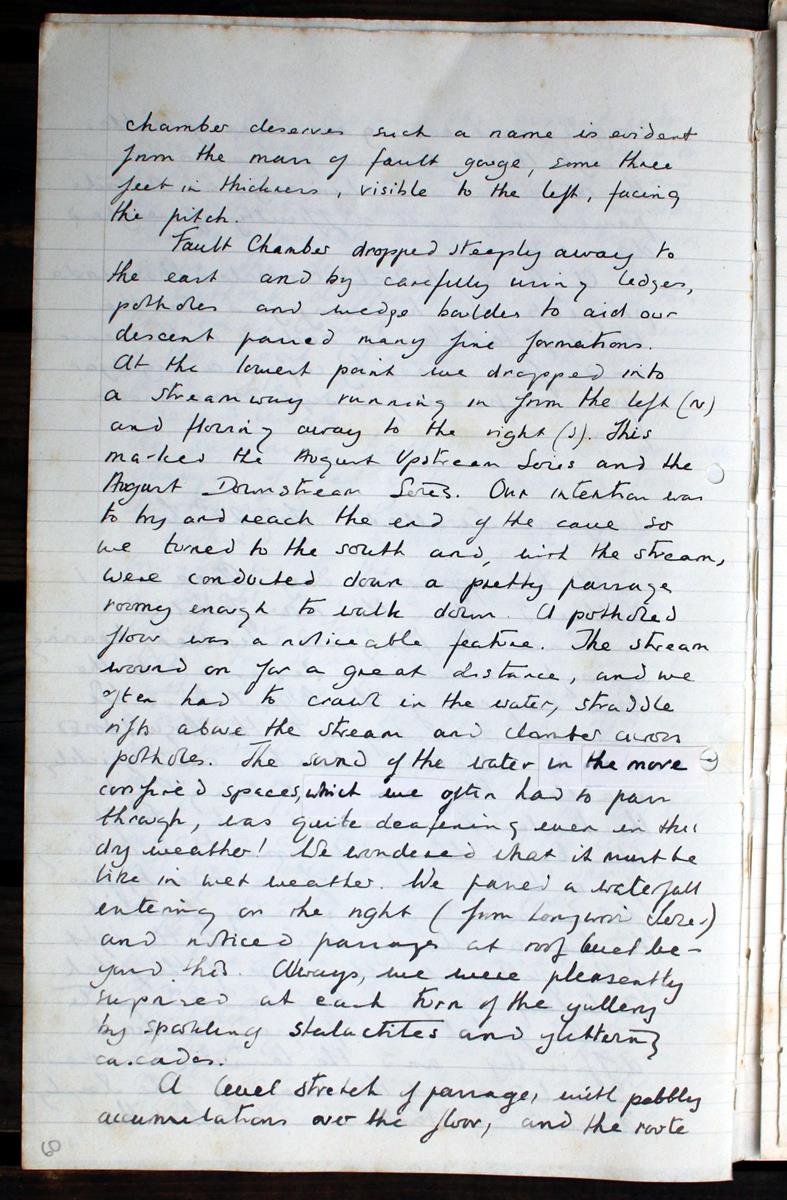 chamber deserves such a name is evident
from the mass of fault gouge, some three
feet in thickness, visible to the left, facing
the pitch.
Fault Chamber dropped steeply away to
the east and by carefully using ledges,
potholes and wedge boulder to aid our
descent passed many fine formations.
At the lowest point we dropped into
a streamway running in from the left (N)
and flowing away to the right (S). This
marked the August Upstream Series and the
August Downstream Series. Our intention was
to try and reach the end of the cave so
we turned to the south and, with the stream,
were conducted down a pretty passage
roomy enough to walk down. A potholed
floor was a noticeable feature. The stream
wound on for a great distance, and we
often had to crawl in the water, straddle
rifts above the stream and clamber across
potholes. The sound of the water in the more
confined spaces, which we often had to pass
through, was quite deafening even in this
dry weather! We wondered what it must be
like in wet weather. We passed a waterfall
entering on the right (from Longwood Series)
and noticed passages at roof level be-
yond this. Always, we were pleasently
surprised at each turn of the gallery
by sparkling stalactites and glittering
cascades.
A level stretch of passage, with pebbly
accumulations over the floor, and the route
60